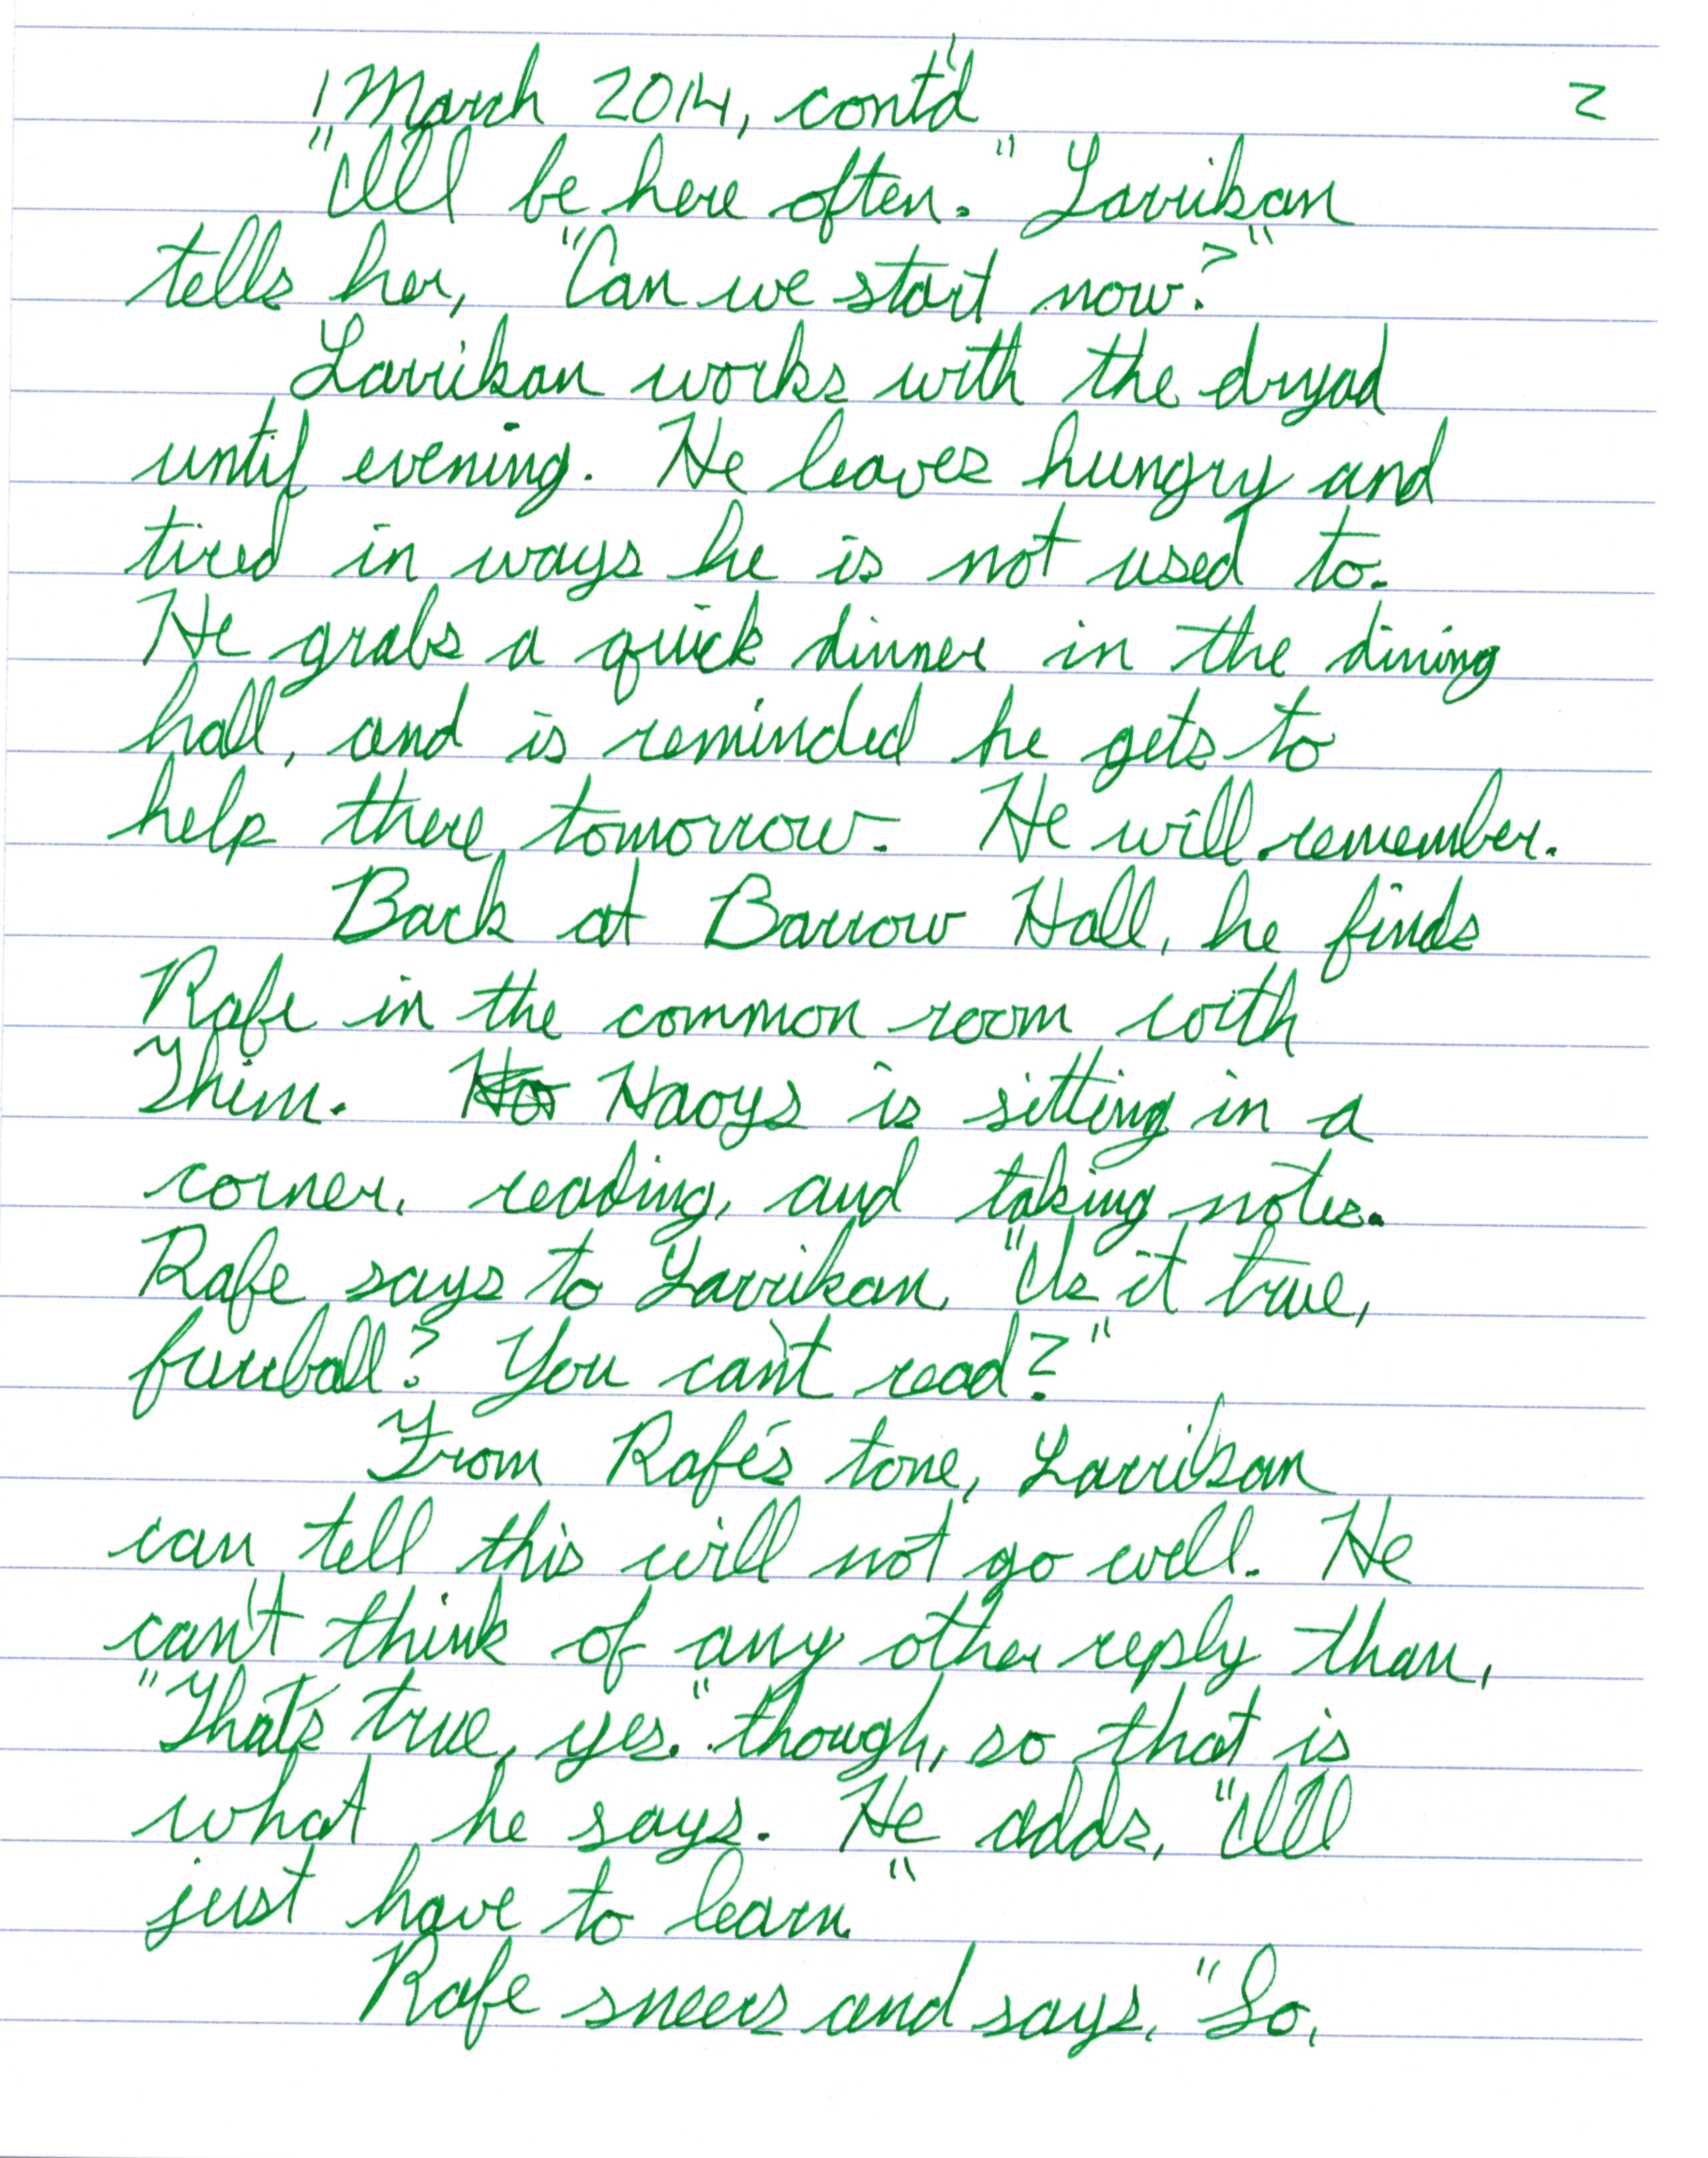 1 March 2014, cont'd 2
"I'll be here often." Larrikan
tells her, "Can we start now?"
Larrikan works with the dryad
until evening. He leaves hungry and
tired in ways he is not used to.
He grabs a quick dinner in the dining
hall, and is reminded he gets to
help there tomorrow. He will remember.
Back at Barrow Hall, he finds
Rafe in the common room with
Thim. Naoys is sitting in a
corner, reading, and taking notes.
Rafe says to Larrikan, "Is it true,
furrball? You can't read?"
From Rafe's tone, Larrikan
can tell this will not go well. He
can't think of any other reply than,
"That's true, yes." though, so that is
what he says. He adds, "I'll
just have to learn."
Rafe sneers and says, "So,